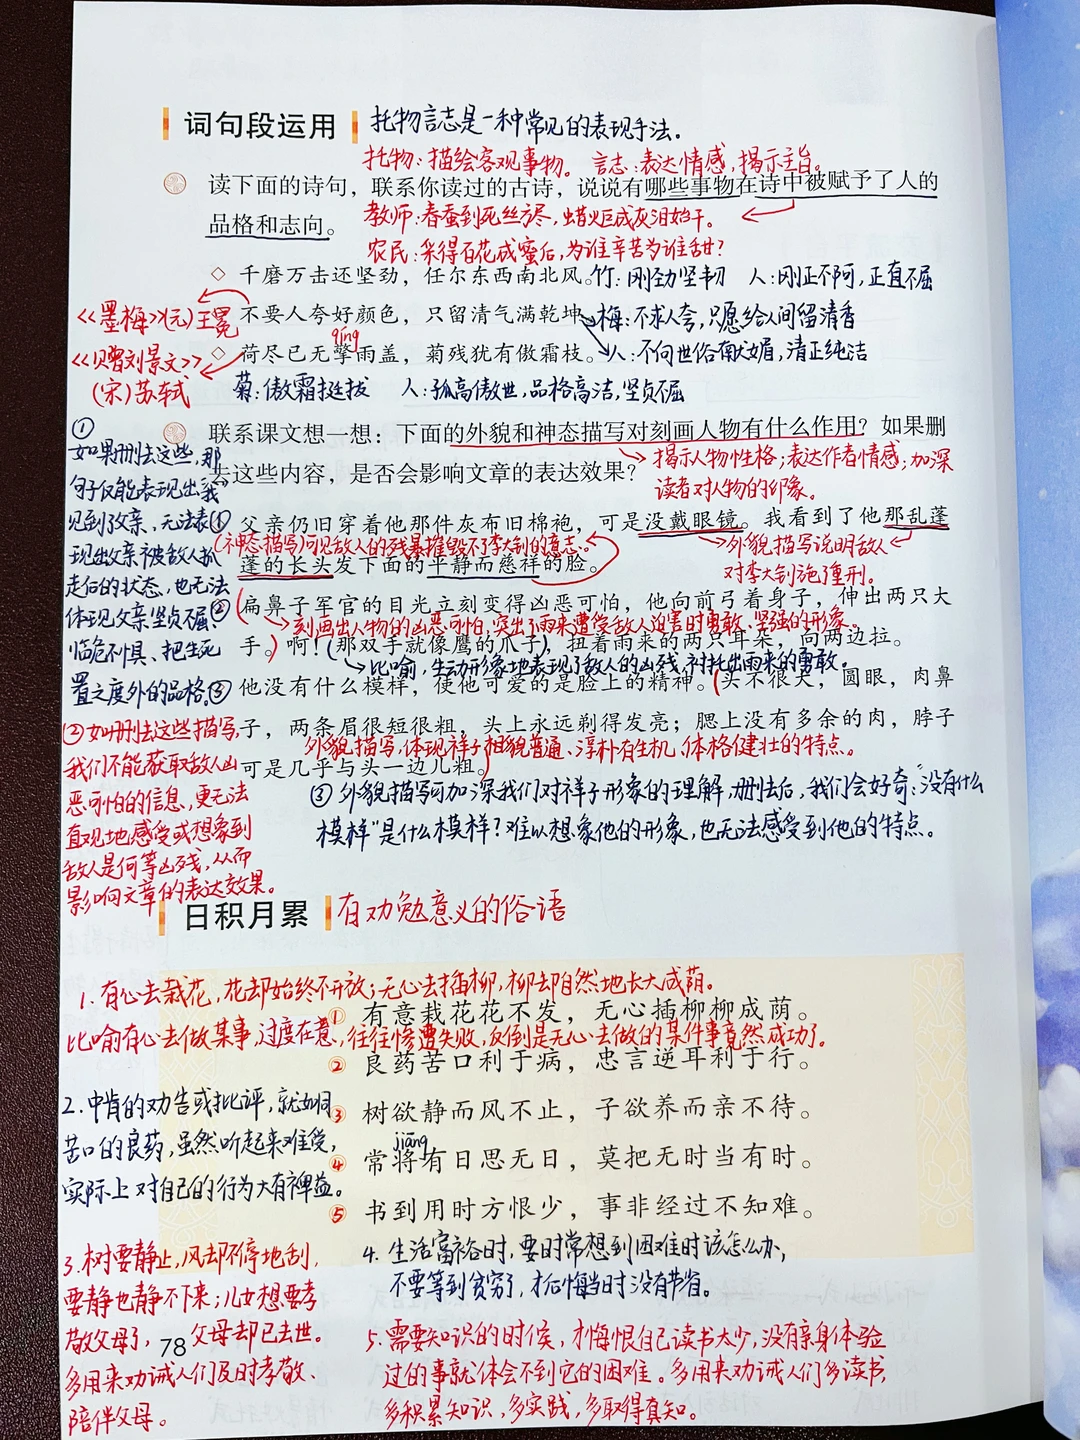 词句段运用
托物言志是一种常见的表现手法.
托物:描绘客观事物。言志:表达情感,揭示主旨。
读下面的诗句，联系你读过的古诗，说说有哪些事物在诗中被赋予了人的
品格和志向。
教师:春蚕到死丝方尽,蜡炬成灰泪始干。
农民:采得百花成蜜后,为谁辛苦为谁甜?
◇ 千磨万击还坚劲，任尔东西南北风。
竹:刚劲坚韧 人:刚正不阿,正直不屈
《墨梅》(元)王冕
不要人夸好颜色，只留清气满乾坤。
梅:不求人夸,只愿给人间留清香
qíng
《赠刘景文》
(宋)苏轼
◇ 荷尽已无擎雨盖，菊残犹有傲霜枝。
人:不向世俗献媚,清正纯洁
菊:傲霜挺拔 人:孤高傲世,品格高洁,坚贞不屈
联系课文想一想：下面的外貌和神态描写对刻画人物有什么作用？如果删
去这些内容，是否会影响文章的表达效果？
揭示人物性格;表达作者情感;加深
读者对人物的印象。
①
如果删去这些,那
句子仅能表现出我
见到了父亲、无法表
现出父亲被敌人抓
走后的状态,也无法
体现父亲坚贞不屈、
临危不惧、把生死
置之度外的品格。
① 父亲仍旧穿着他那件灰布旧棉袍，可是没戴眼镜。我看到了他那乱蓬
(神态描写)可见敌人的残暴摧毁不了李大钊的意志。
外貌描写说明敌人
对李大钊施了重刑。
蓬的长头发下面的平静而慈祥的脸。
② (扁鼻子军官的目光立刻变得凶恶可怕，他向前弓着身子，伸出两只大
刻画出人物的凶恶可怕,突出了雨来遭受敌人迫害时勇敢、坚强的形象。
手。)啊！(那双手就像鹰的爪子)，扭着雨来的两只耳朵，向两边拉。
比喻,生动形象地表现了敌人的凶残,衬托出雨来的勇敢。
③ 他没有什么模样，使他可爱的是脸上的精神。(头不很大，圆眼，肉鼻
子，两条眉很短很粗，头上永远剃得发亮；腮上没有多余的肉，脖子
外貌描写,体现祥子相貌普通、淳朴有生机、体格健壮的特点。
可是几乎与头一边儿粗。)
②如删去这些描写,
我们不能获取敌人凶
恶可怕的信息,更无法
直观地感受或想象到
敌人是何等凶残,从而
影响文章的表达效果。
③ 外貌描写可加深我们对祥子形象的理解,删去后,我们会好奇:“没有什么
模样”是什么模样?难以想象他的形象,也无法感受到他的特点。
日积月累
有劝勉意义的俗语
1.有心去栽花,花却始终不开放;无心去插柳,柳却自然地长大成荫。
① 有意栽花花不发，无心插柳柳成荫。
比喻有心去做某事,过度在意,往往惨遭失败,反倒是无心去做的某件事竟然成功了。
② 良药苦口利于病，忠言逆耳利于行。
2.中肯的劝告或批评,就如同
苦口的良药,虽然听起来难受,
实际上对自己的行为大有裨益。
③ 树欲静而风不止，子欲养而亲不待。
jiāng
④ 常将有日思无日，莫把无时当有时。
⑤ 书到用时方恨少，事非经过不知难。
3.树要静止,风却不停地刮,
要静也静不下来;儿女想要孝
敬父母了,父母却已去世。
多用来劝诫人们及时孝敬、
陪伴父母。
4.生活富裕时,要时常想到困难时该怎么办,
不要等到贫穷了,才后悔当时没有节省。
5.需要知识的时候,才悔恨自己读书太少,没有亲身体验
过的事就体会不到它的困难。多用来劝诫人们多读书,
多积累知识,多实践,多取得真知。
78